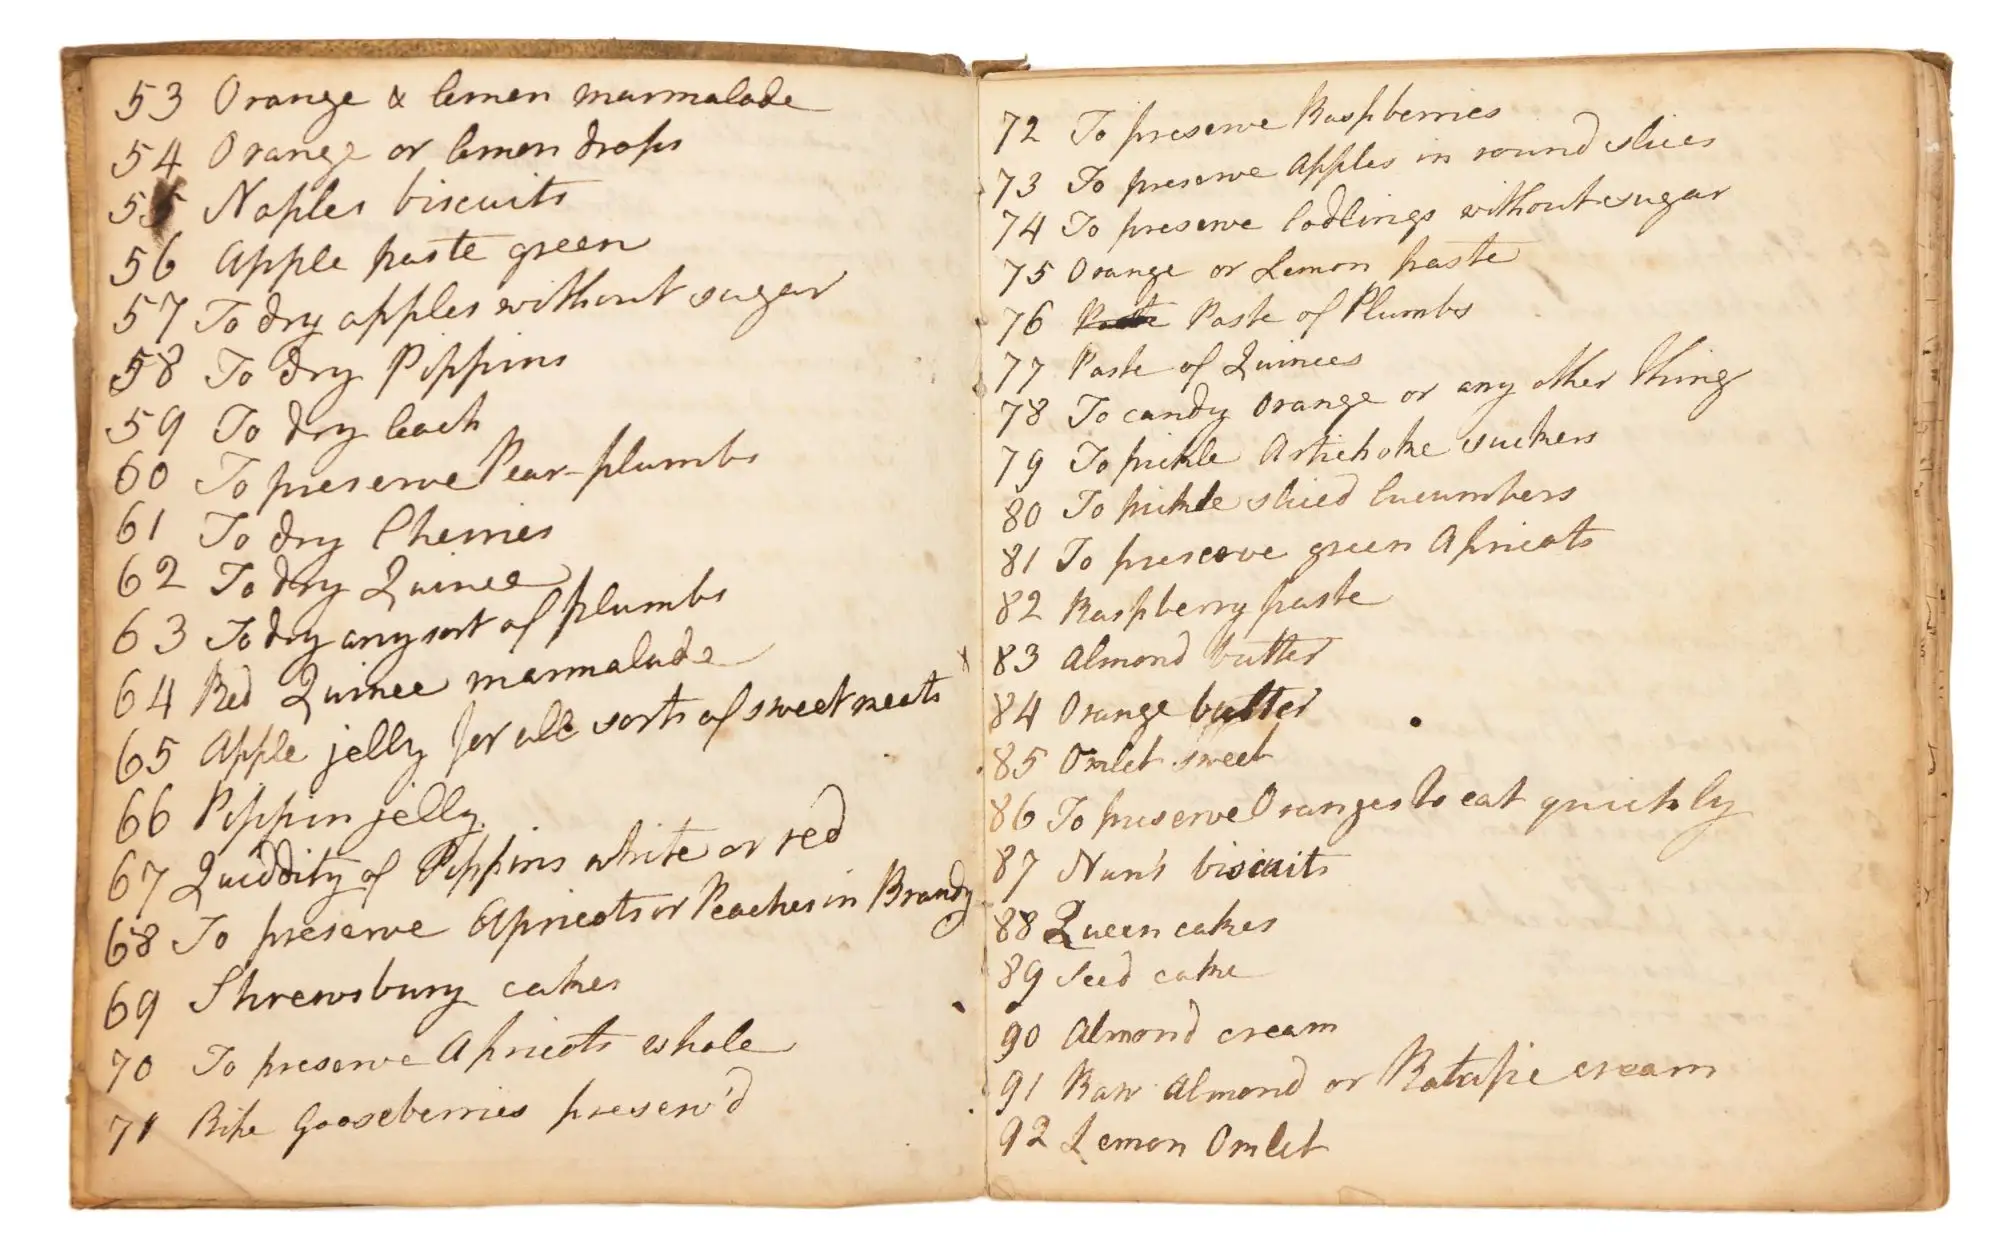 53 Orange & lemon marmalade
54 Orange or lemon drops
55 Naples biscuits
56 Apple paste green
57 To dry apples without sugar
58 To dry Pippins
59 To dry
60 To preserve Pear-plumbs
61 To dry Cherries
62 To dry Quince
63 To dry any sort of plumbs
64 Red Quince marmalade
65 Apple jelly for all sorts of sweetmeats
66 Pippin jelly
67 Quiddity of Pippins white or red
68 To preserve Apricots or Peaches in Brandy
69 Shrewsbury cakes
70 To preserve Apricots whole
71 Ripe Gooseberries preserv'd
72 To preserve Raspberries
73 To preserve Apples in round slices
74 To preserve Codlings without sugar
75 Orange or Lemon paste
76 Paste of Plumbs
77 Paste of Quinces
78 To candy Orange or any other thing
79 To pickle Artichoke suckers
80 To pickle sliced Cucumbers
81 To preserve green Apricots
82 Raspberry paste
x 83 Almond butter
84 Orange butter
85 Omlet sweet
86 To preserve Oranges to eat quickly
87 Nun's biscuits
88 Queen cakes
89 Seed cake
90 Almond cream
91 Raw Almond or Ratafie cream
92 Lemon Omlet